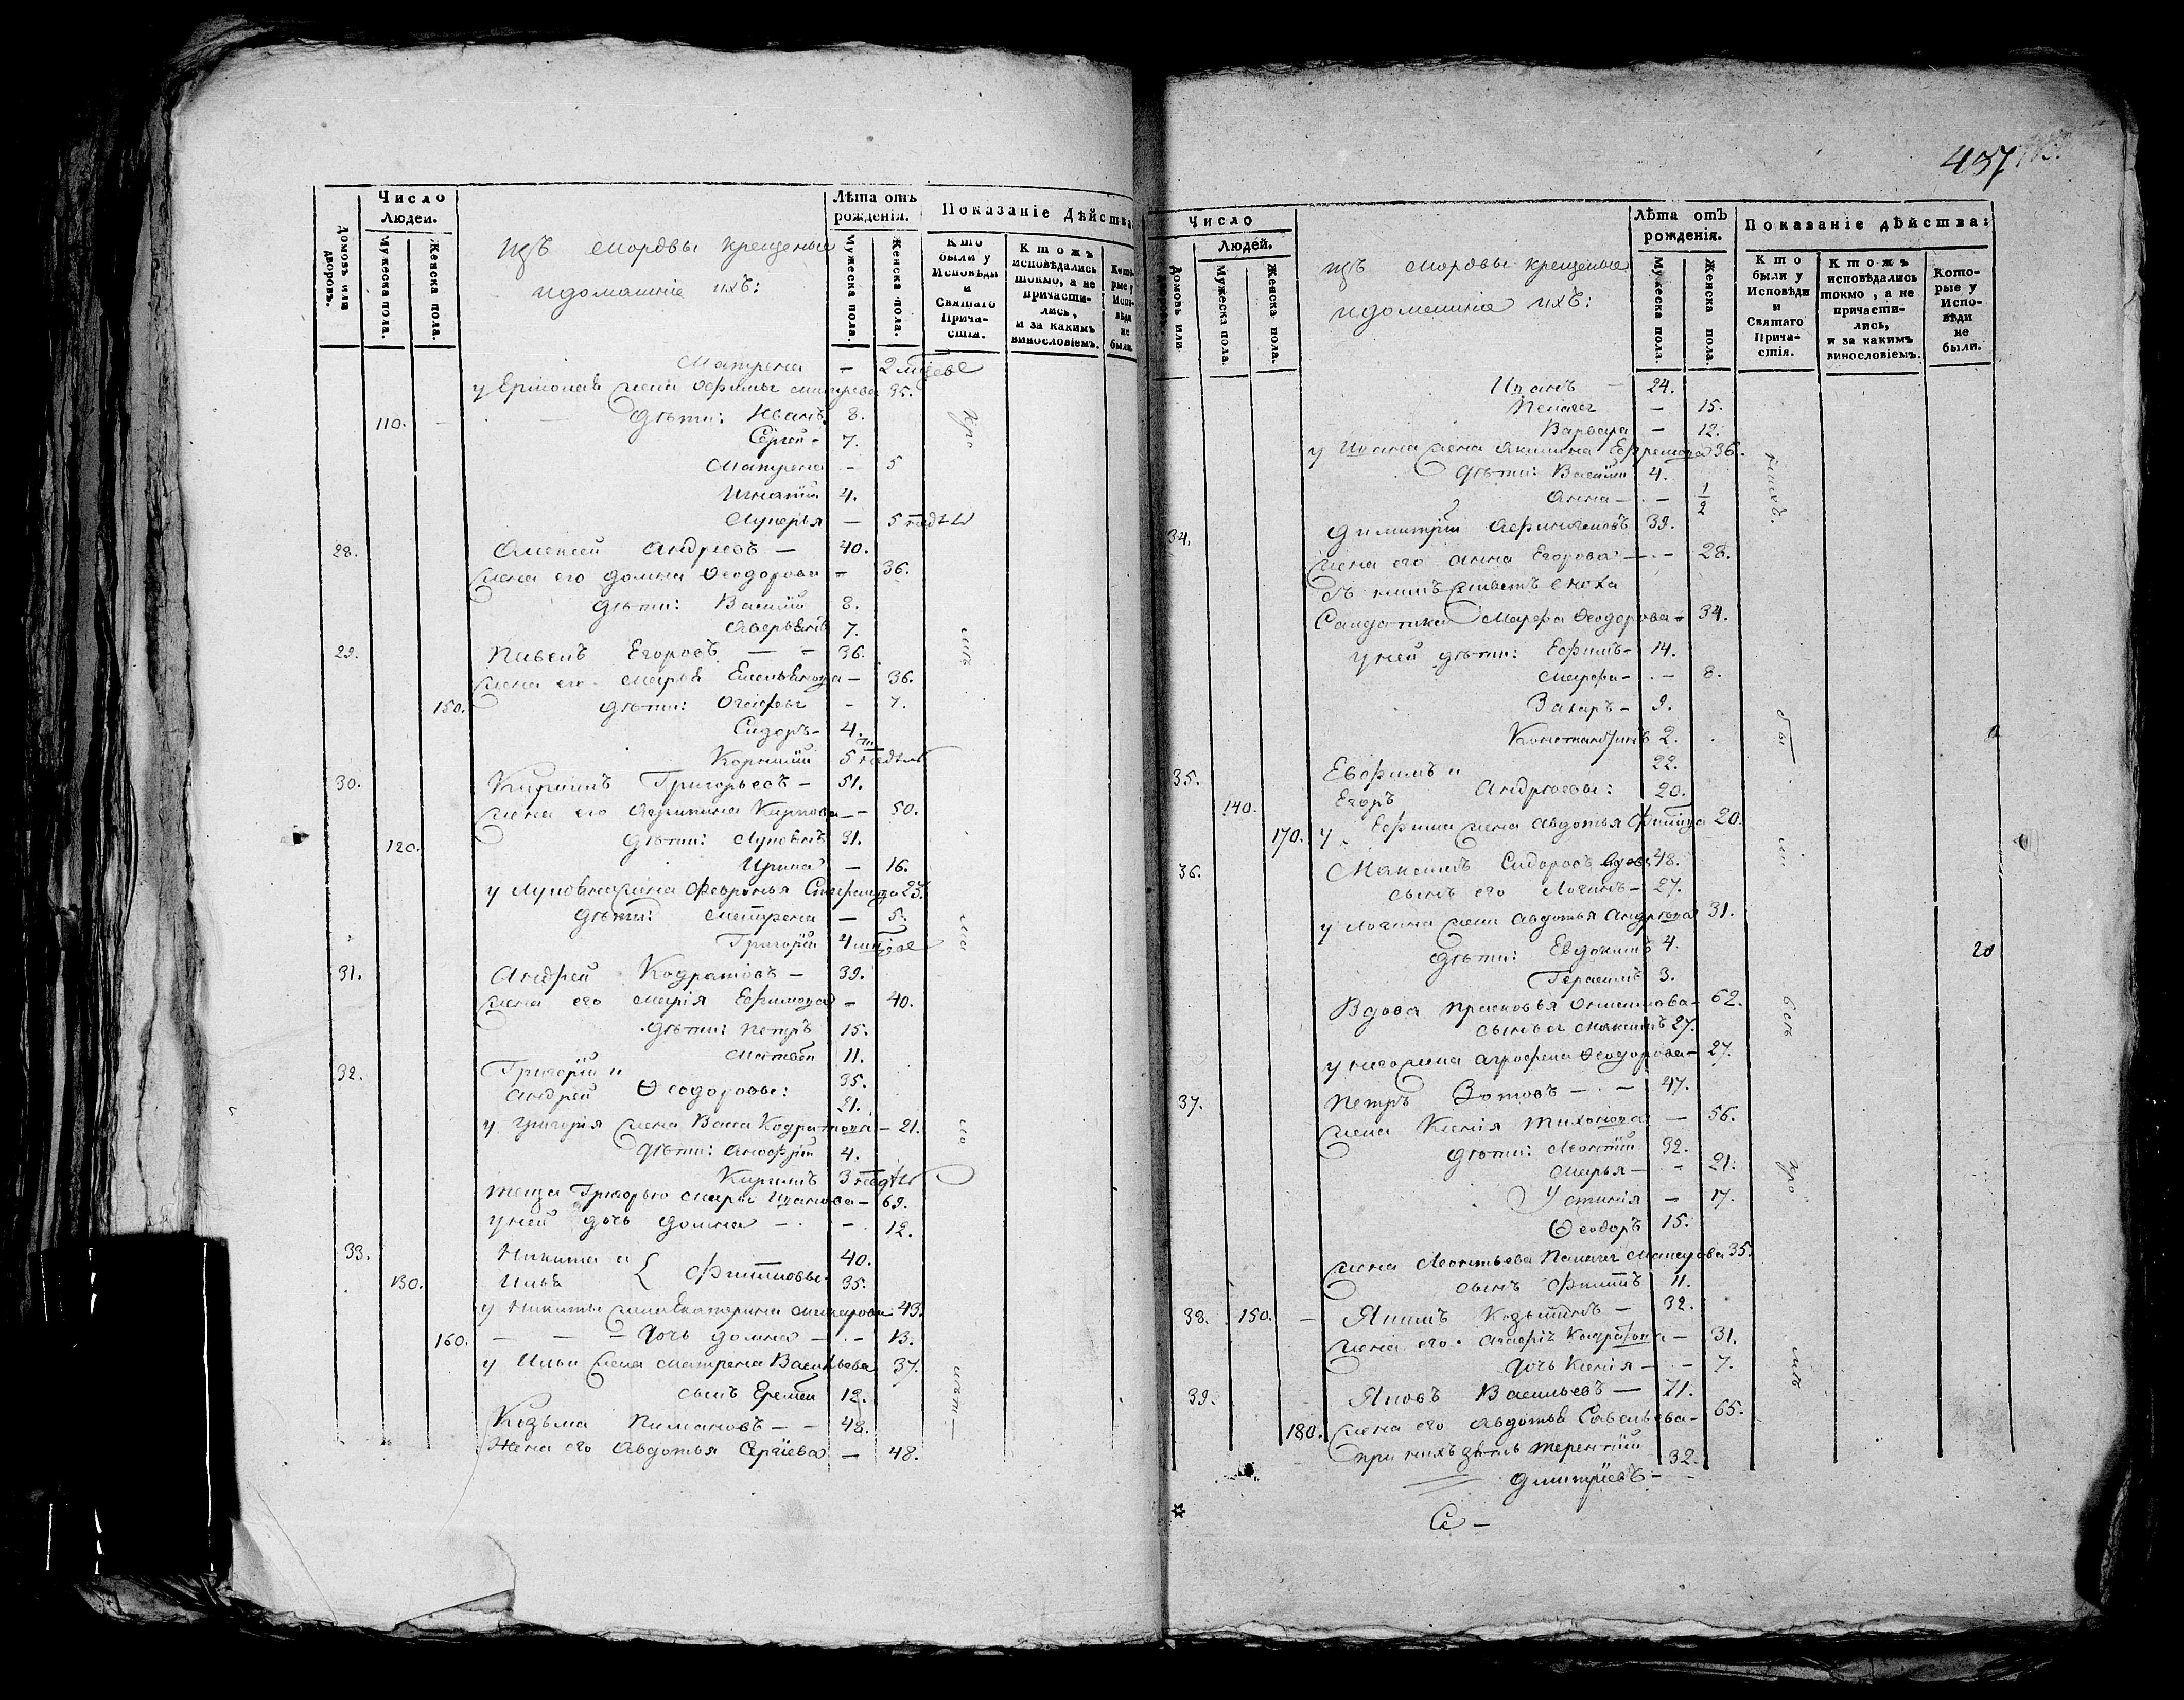 Число Людей.
Домовъ или дворовъ.
Мужеска пола.
Женска пола.
изъ мордвы крещеныя
и домашніе ихъ:
Лѣта отъ рожденія.
Мужеска пола.
Женска пола.
Показаніе дѣйства
Кто были у Исповѣди и Святаго Причастія.
Ктожъ исповѣдались токмо, а не причастились, и за какимъ винословіемъ.
Которые у Исповѣди не были.
Матрена — 2 мцевъ
у жена 35.
110. дѣти: Иванъ 8.
Сергей - 7.
Матрена - 5
Игнатій 4.
Лукерья — 5 недѣль
28. Алексей Андреевъ — 40.
жена его Домна Ѳеодорова - 36.
дѣти: Василій 8.
Аверьянъ 7.
29. Павелъ Егоровъ — - 36.
жена его Марья Емельянова - 36.
150. дѣти: - 7.
Сидоръ - 4.
Корнилій 5 недѣль
30. Кирилъ Григорьевъ - 51.
жена его Карпова - 50.
120. дѣти: Лупоянъ 31.
Ирина — 16.
у Лупояна жена Февронья Стефанова 23.
дѣти: Матрена — 5.
Григорій 4 мцевъ
31. Андрей Кодратовъ - 39.
жена его Марія Ефимова - 40.
дѣти: Петръ 15.
Матвѣй 11.
32. Григорій и 35.
Андрей Ѳеодоровы: 21.
у Григорія жена Васа Кодратова - 21.
дѣти: 4.
Кирилъ 3 недѣль
теща Григорью Марья Иванова - 69.
у ней дочь Домна - - 12.
33. Никита и 40.
130. Илья { Филиповы 35.
у Никиты жена Екатерина Макарова 43.
160. — — — дочь Домна - - 13.
у Ильи жена Матрена Васильева 37.
сынъ Еремей 12.
Козьма Пимановъ — - 48.
Жена его Авдотья Сергіева — 48.
437
Число Людей.
Домовъ или дворовъ.
Мужеска пола.
Женска пола.
изъ мордвы крещеныя
и домашніе ихъ:
Лѣта отъ рожденія.
Мужеска пола.
Женска пола.
Показаніе дѣйства:
Кто были у Исповѣди и Святаго Причастія.
Ктожъ исповѣдались токмо, а не причастились, и за какимъ винословіемъ.
Которые у Исповѣди не были.
Иванъ - 24.
Пелагея - 15.
Варвара - 12.
у Ивана жена Акилина Ефремова 36.
дѣти: Василій 4.
Анна - - 1/2
34. Димитрій 39.
жена его Анна Егорова - - 28.
съ нимъ живетъ сноха
Салдатка Марфа Ѳеодорова - 34.
у ней дѣти: Ефимъ - 14.
Марфа - - 8.
Захаръ - 9.
Константинъ 2.
35. Ефимъ и 22.
140. Егоръ Андреевы: 20.
170. у Ефима жена Авдотья 20.
36. Максимъ Сидоровъ вдовъ 48.
сынъ его Логинъ - 27.
у Логина жена Авдотья Андреева 31.
дѣти: Евдокимъ 4.
Герасимъ 3.
20
Вдова Прасковья - 62.
сынъ ея Максимъ 27.
у него жена Агрофена Ѳеодорова - 27.
37. Петръ Зотовъ - - 47.
жена Ксенія Тихонова - 56.
дѣти: Леонтій 32.
Марья - - 21.
Устинія - 17.
Ѳеодоръ 15.
жена Леонтьева Пелагея Макарова 35.
сынъ Филипъ 11.
38. 150. - Якимъ Козьминъ - 32.
жена его Кодратова - 31.
дочь Ксенія - - 7.
39. Яковъ Васильевъ — 71.
180. жена его Авдотья Савельева - 65.
при нихъ зять Терентій
Димитріевъ - 32.
Се -